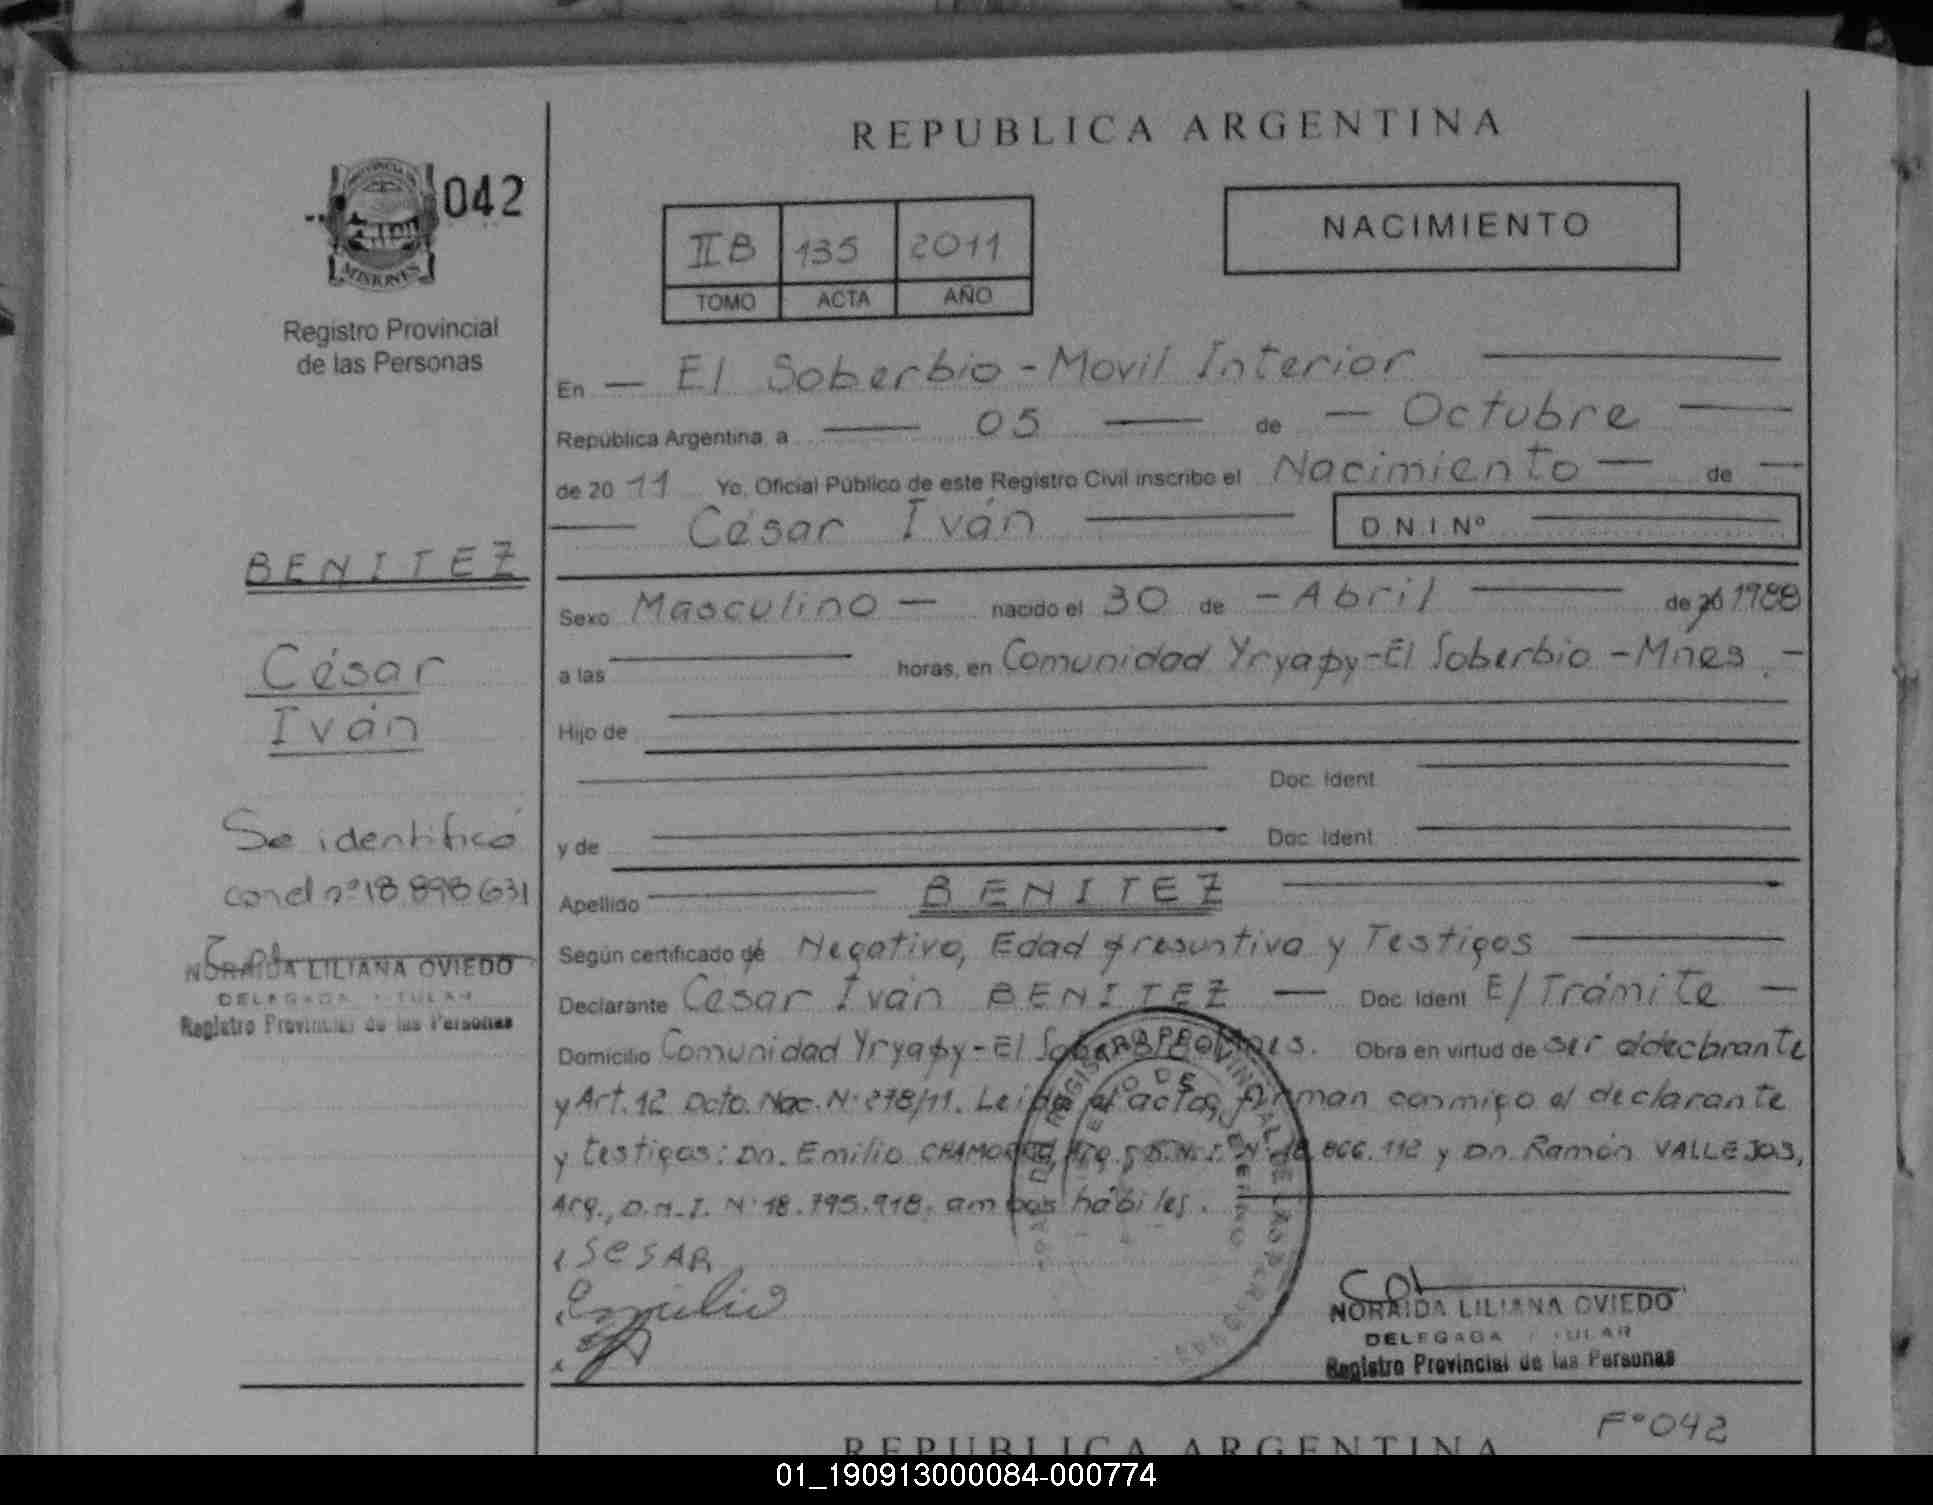 REPUBLICA ARGENTINA
042
MISIONES
Registro Provincial
de las Personas
II B 135 2011
TOMO ACTA AÑO
NACIMIENTO
En — El Soberbio - Movil Interior
República Argentina, a — 05 — de — Octubre
de 20 11 Yo, Oficial Público de este Registro Civil inscribo el Nacimiento — de —
— César Iván — D.N.I. Nº
BENITEZ
César
Iván
Se identificó
con el nº 18 898 631
NORAIDA LILIANA OVIEDO
DELEGADA TITULAR
Registro Provincial de las Personas
Sexo Masculino — nacido el 30 de - Abril — de 20 1988
a las — horas, en Comunidad Yryapy - El Soberbio - Mnes. -
Hijo de
Doc. Ident.
y de Doc. Ident.
Apellido — BENITEZ —
Según certificado de Negativo, Edad presuntiva y Testigos
Declarante César Iván BENITEZ — Doc. Ident E/Trámite —
Domicilio Comunidad Yryapy - El Soberbio Mnes. Obra en virtud de ser el declarante
y Art. 12 Dcto. Nac. Nº 278/11. Leída el acta, firman conmigo el declarante
y testigos: Dn. Emilio CHAMORRO, Arg., D.N.I. Nº 866.112 y Dn. Ramón VALLEJOS,
Arg., D.N.I. Nº 18.795.918, ambos hábiles.
SESAR
Emilio
NORAIDA LILIANA OVIEDO
DELEGADA TITULAR
Registro Provincial de las Personas
Fº 042
REPUBLICA ARGENTINA
01_190913000084-000774